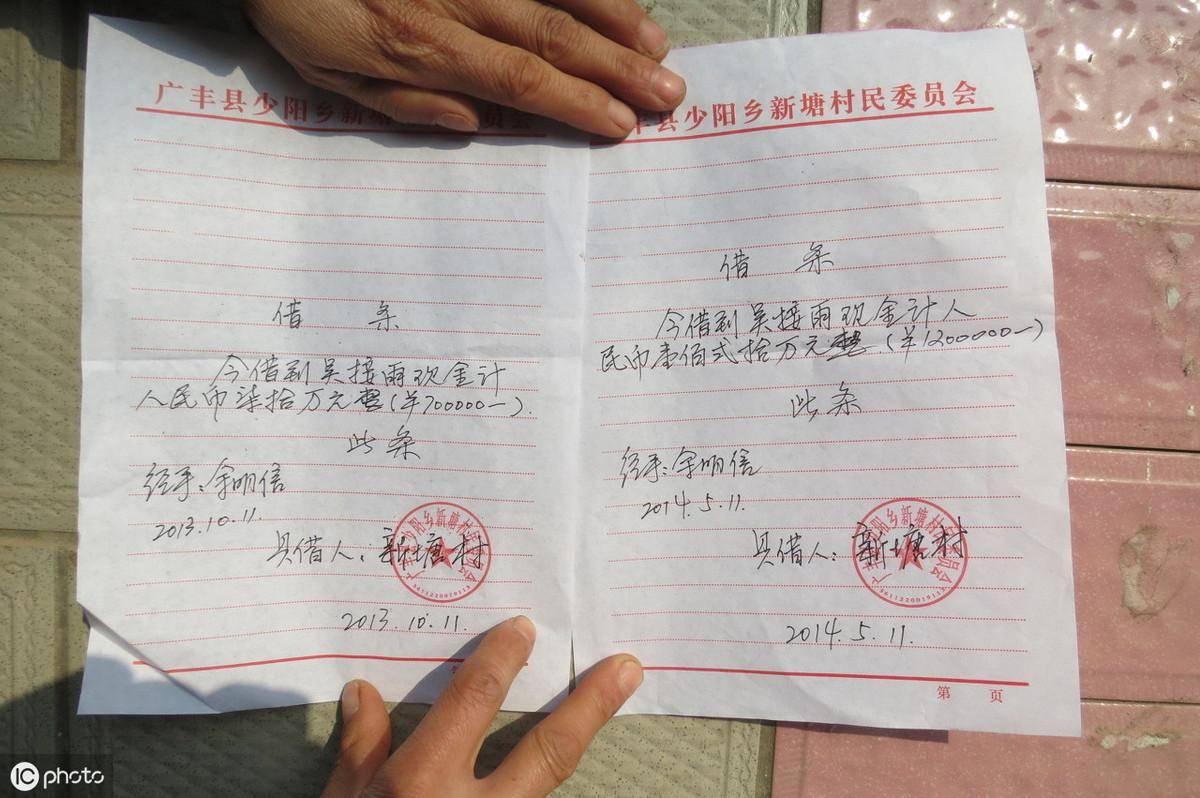 广丰县少阳乡新塘村民委员会
借 条
今借到吴接雨现金计
人民币柒拾万元整(¥700000—).
此条
经手:余明信
2013.10.11.
具借人:新塘村
2013.10.11.
丰县少阳乡新塘村民委员会
借 条
今借到吴接雨现金计人
民币壹佰弍拾万元整.(¥1200000—)
此条
经手:余明信
2014.5.11
具借人:新塘村
3611220019113
2014.5.11.
第 页
IC photo